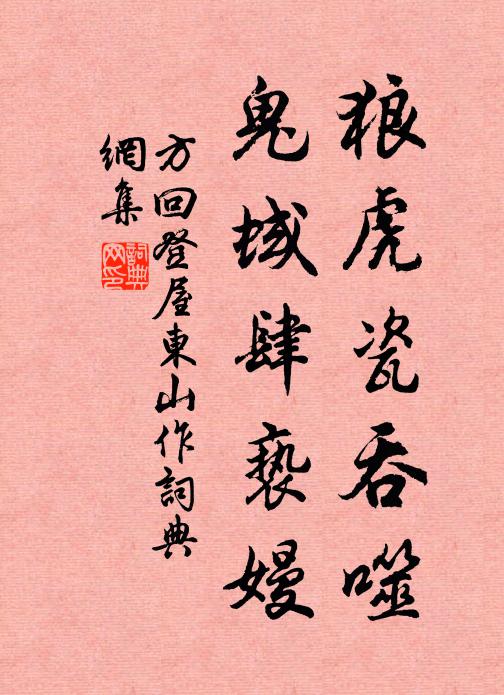 狼虎瓷吞噬
鬼域肆亵嫚
方回登屋東山作詞典
網集
詞典
网印